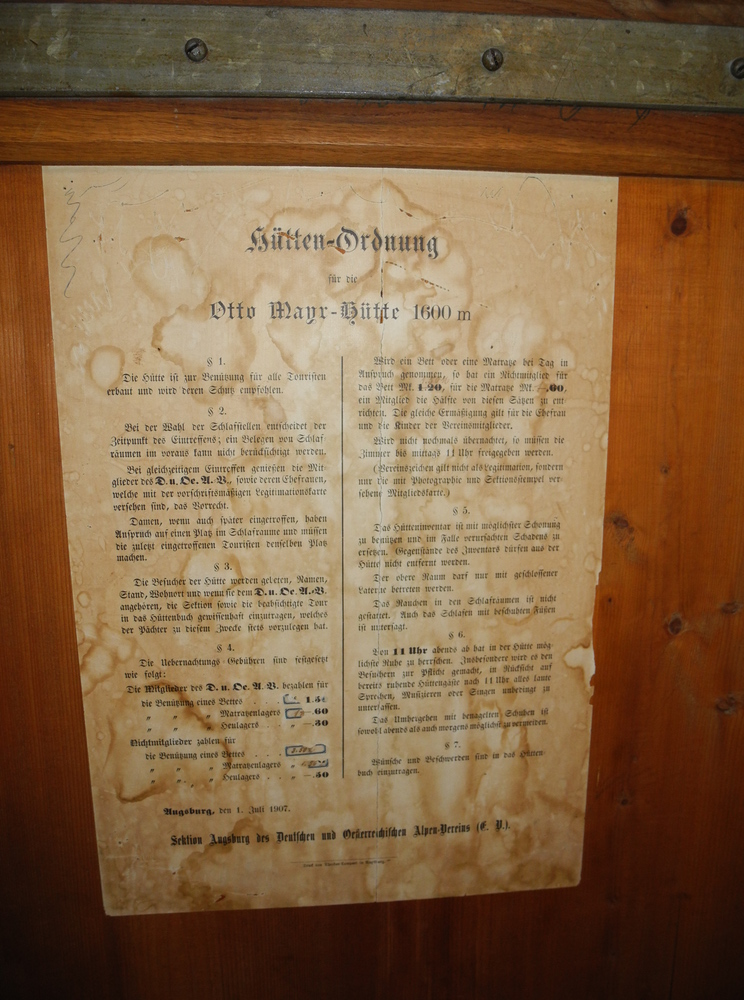 Hütten-Ordnung
für die
Otto Mayr-Hütte 1600 m
§ 1.
Die Hütte ist zur Benützung für alle Touristen
erbaut und wird deren Schutz empfohlen.
§ 2.
Bei der Wahl der Schlafstellen entscheidet der
Zeitpunkt des Eintreffens; ein Belegen von Schlaf-
räumen im voraus kann nicht berücksichtigt werden.
Bei gleichzeitigem Eintreffen genießen die Mit-
glieder des D. u. Oe. A.-V., sowie deren Ehefrauen,
welche mit der vorschriftsmäßigen Legitimationskarte
versehen sind, das Vorrecht.
Damen, wenn auch später eingetroffen, haben
Anspruch auf einen Platz im Schlafraume und müssen
die zuletzt eingetroffenen Touristen denselben Platz
machen.
§ 3.
Die Besucher der Hütte werden gebeten, Namen,
Stand, Wohnort und wenn sie dem D. u. Oe. A. V.
angehören, die Sektion sowie die beabsichtigte Tour
in das Hüttenbuch gewissenhaft einzutragen, welches
der Pächter zu diesem Zwecke stets vorzulegen hat.
§ 4.
Die Uebernachtungs-Gebühren sind festgesetzt
wie folgt:
Die Mitglieder des D. u. Oe. A. V. bezahlen für
die Benützung eines Bettes
„ „ „ Matratzenlagers —.60
„ „ „ Heulagers . . „ —.30
Nichtmitglieder zahlen für
die Benützung eines Bettes . . .
„ „ „ Matratzenlagers „
„ „ „ Heulagers . . „ —.40
Wird ein Bett oder eine Matratze bei Tag in
Anspruch genommen, so hat ein Nichtmitglied für
das Bett Mk. 1.20, für die Matratze Mk. —.60,
ein Mitglied die Hälfte von diesen Sätzen zu ent-
richten. Die gleiche Ermäßigung gilt für die Ehefrau
und die Kinder der Vereinsmitglieder.
Wird nicht nochmals übernachtet, so müssen die
Zimmer bis mittags 11 Uhr freigegeben werden.
(Vereinszeichen gilt nicht als Legitimation, sondern
nur die mit Photographie und Sektionsstempel ver-
sehene Mitgliedskarte.)
§ 5.
Das Hütteninventar ist mit möglichster Schonung
zu benützen und im Falle verursachten Schadens zu
ersetzen. Gegenstände des Inventars dürfen aus der
Hütte nicht entfernt werden.
Der obere Raum darf nur mit geschlossener
Laterne betreten werden.
Das Rauchen in den Schlafräumen ist nicht
gestattet. Auch das Schlafen mit beschuhten Füßen
ist untersagt.
§ 6.
Von 11 Uhr abends ab hat in der Hütte mög-
lichste Ruhe zu herrschen. Insbesondere wird es den
Besuchern zur Pflicht gemacht, in Rücksicht auf
bereits ruhende Hüttengäste nach 11 Uhr alles laute
Sprechen, Musizieren oder Singen unbedingt zu
unterlassen.
Das Umhergehen mit benagelten Schuhen ist
sowohl abends als auch morgens möglichst zu vermeiden.
§ 7.
Wünsche und Beschwerden sind in das Hütten-
buch einzutragen.
Augsburg, den 1. Juli 1907.
Sektion Augsburg des Deutschen und Oesterreichischen Alpen-Vereins (E. V.).